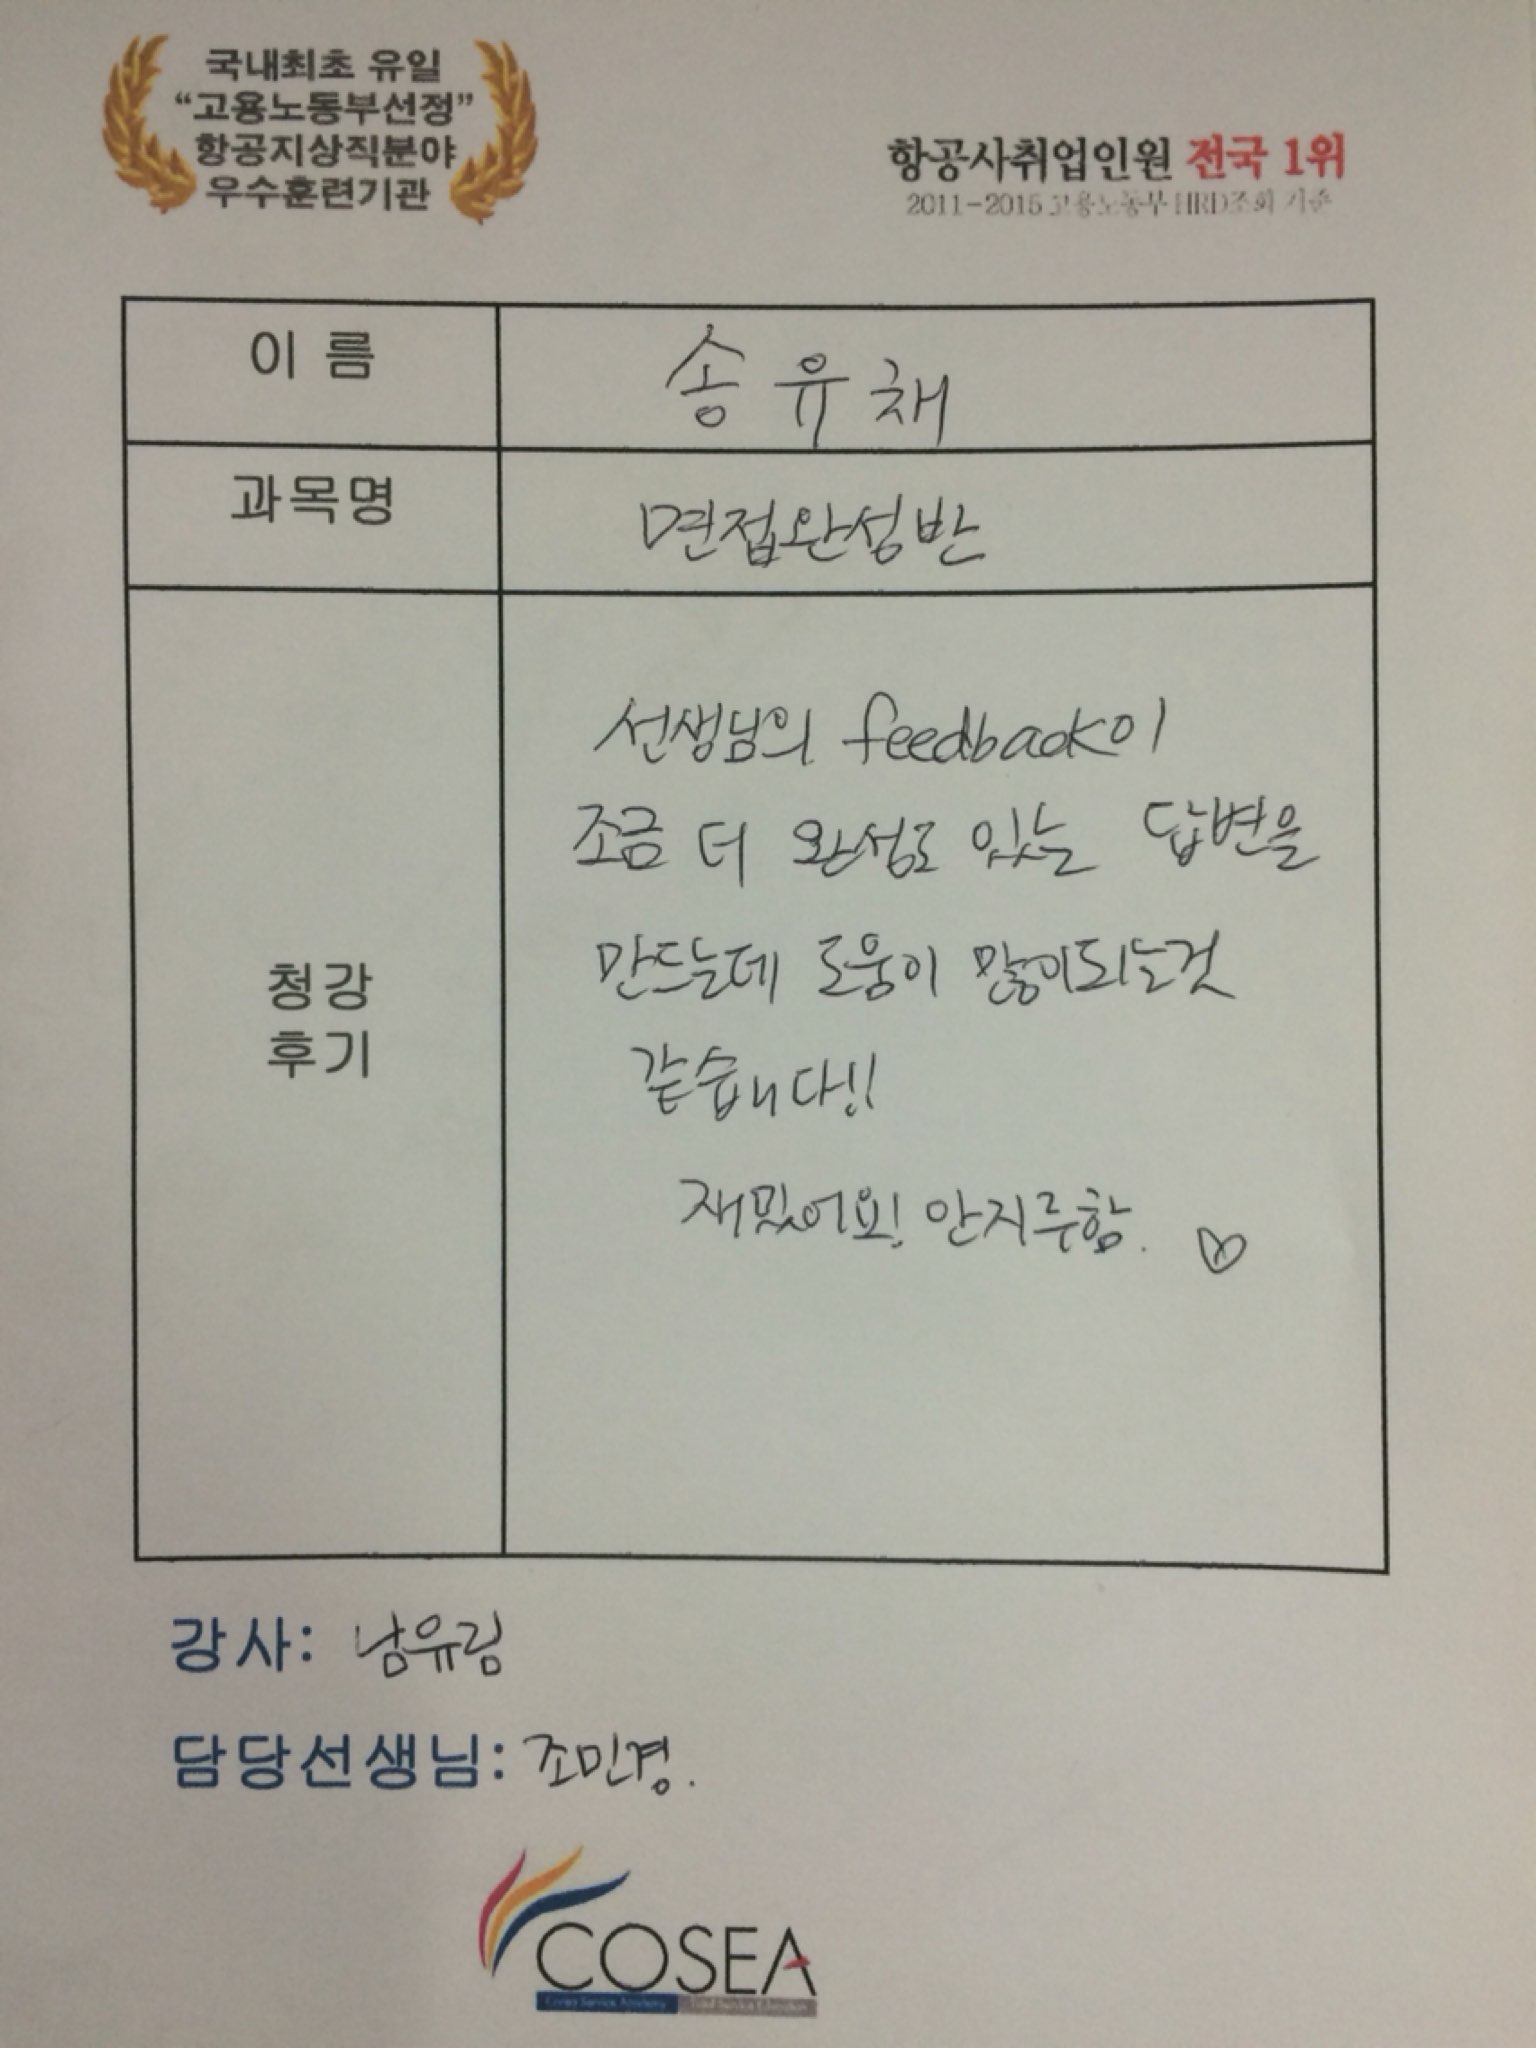 국내최초 유일
“고용노동부선정”
항공지상직분야
우수훈련기관
항공사취업인원 전국 1위
2011-2015 고용노동부 HRD조회 기준
이 름
송유채
과목명
면접완성반
청강
후기
선생님의 feedback이
조금 더 완성도 있는 답변을
만드는데 도움이 많이되는것
같습니다!!
재밌어요! 안지루함. ♡
강사: 남유림
담당선생님: 조민경.
COSEA
Korea Service Academy Total Service Education